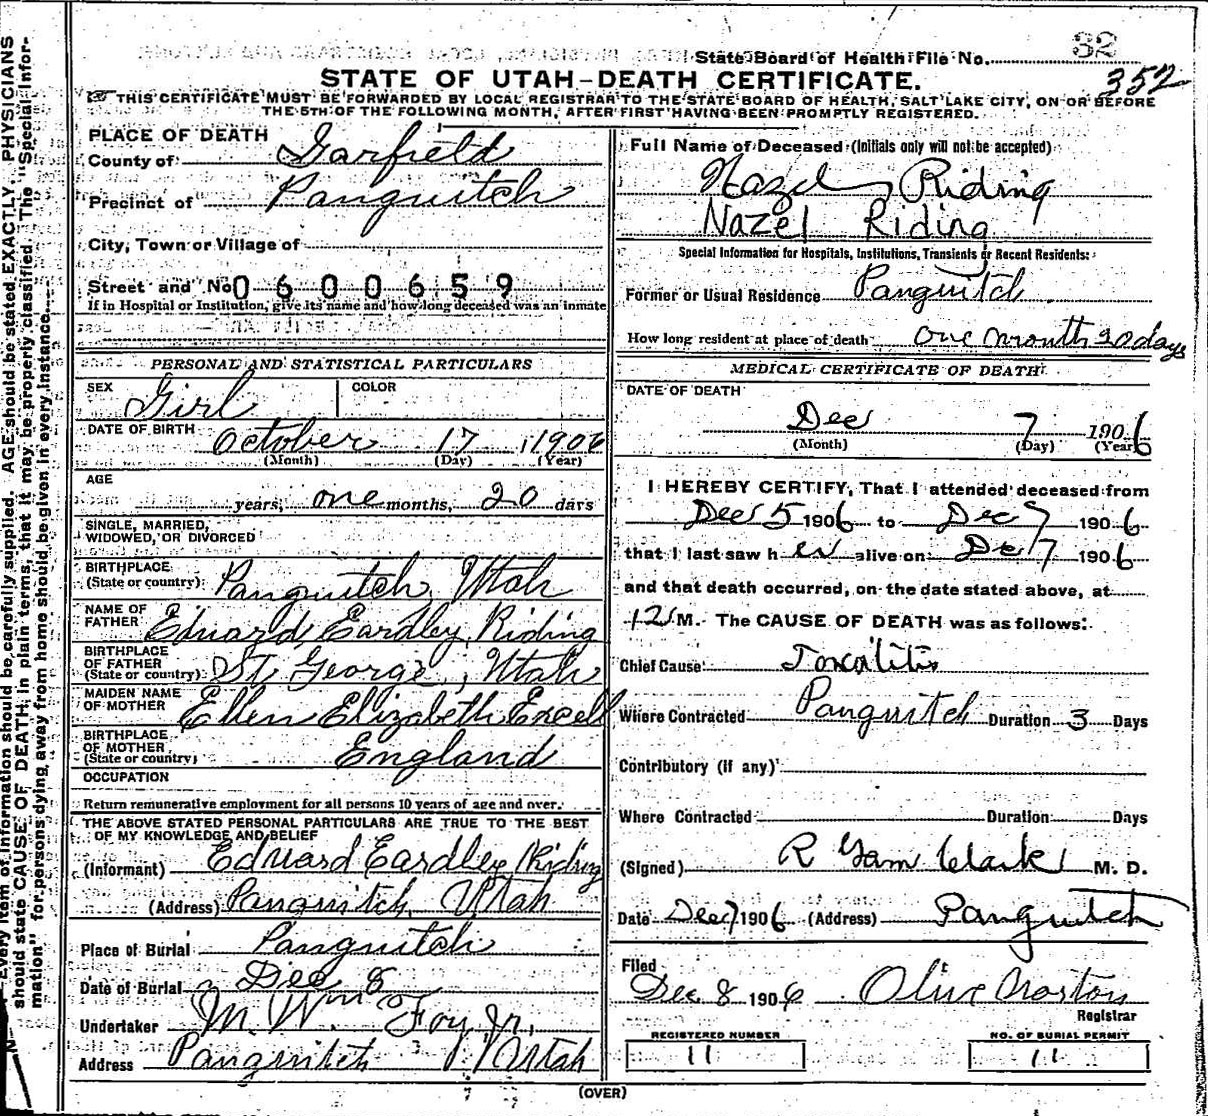 State Board of Health File No. 32
352
STATE OF UTAH-DEATH CERTIFICATE.
THIS CERTIFICATE MUST BE FORWARDED BY LOCAL REGISTRAR TO THE STATE BOARD OF HEALTH, SALT LAKE CITY, ON OR BEFORE
THE 5TH OF THE FOLLOWING MONTH, AFTER FIRST HAVING BEEN PROMPTLY REGISTERED.
PLACE OF DEATH
County of Garfield
Precinct of Panguitch
City, Town or Village of
Street and No. 0600659
If in Hospital or Institution, give its name and how long deceased was an inmate
PERSONAL AND STATISTICAL PARTICULARS
SEX Girl COLOR
DATE OF BIRTH October 17, 1906
(Month) (Day) (Year)
AGE
years, one months, 20 days
SINGLE, MARRIED,
WIDOWED, OR DIVORCED
BIRTHPLACE
(State or country) Panguitch, Utah
NAME OF
FATHER Eduard Eardley Riding
BIRTHPLACE
OF FATHER
(State or country) St. George, Utah
MAIDEN NAME
OF MOTHER Ellen Elizabeth Excell
BIRTHPLACE
OF MOTHER
(State or country) England
OCCUPATION
Return remunerative employment for all persons 10 years of age and over.
THE ABOVE STATED PERSONAL PARTICULARS ARE TRUE TO THE BEST
OF MY KNOWLEDGE AND BELIEF
(Informant) Eduard Eardley Riding
(Address) Panguitch, Utah
Place of Burial Panguitch
Date of Burial Dec 8
Undertaker M. Wm. Foy Jr.
Address Panguitch Utah
Full Name of Deceased (Initials only will not be accepted)
Hazel Riding
Nazel Riding
Special Information for Hospitals, Institutions, Transients or Recent Residents:
Former or Usual Residence Panguitch.
How long resident at place of death one month 20 days
MEDICAL CERTIFICATE OF DEATH
DATE OF DEATH
Dec 7 1906
(Month) (Day) (Year)
I HEREBY CERTIFY, That I attended deceased from
Dec 5 1906 to Dec 7 1906
that I last saw h er alive on Dec 7 1906
and that death occurred, on the date stated above, at
12 M. The CAUSE OF DEATH was as follows:
Chief Cause
Where Contracted Panguitch Duration 3 Days
Contributory (if any)
Where Contracted Duration Days
(Signed) R Clark M. D.
Date Dec 7 1906 (Address) Panguitch
Filed
Dec 8 1906 Olive Norton
Registrar
REGISTERED NUMBER
11
NO. OF BURIAL PERMIT
11
(OVER)
Every item of information should be carefully supplied. AGE should be stated EXACTLY. PHYSICIANS
should state CAUSE OF DEATH in plain terms, that it may be properly classified. The "Special Infor-
mation" for persons dying away from home should be given in every instance.